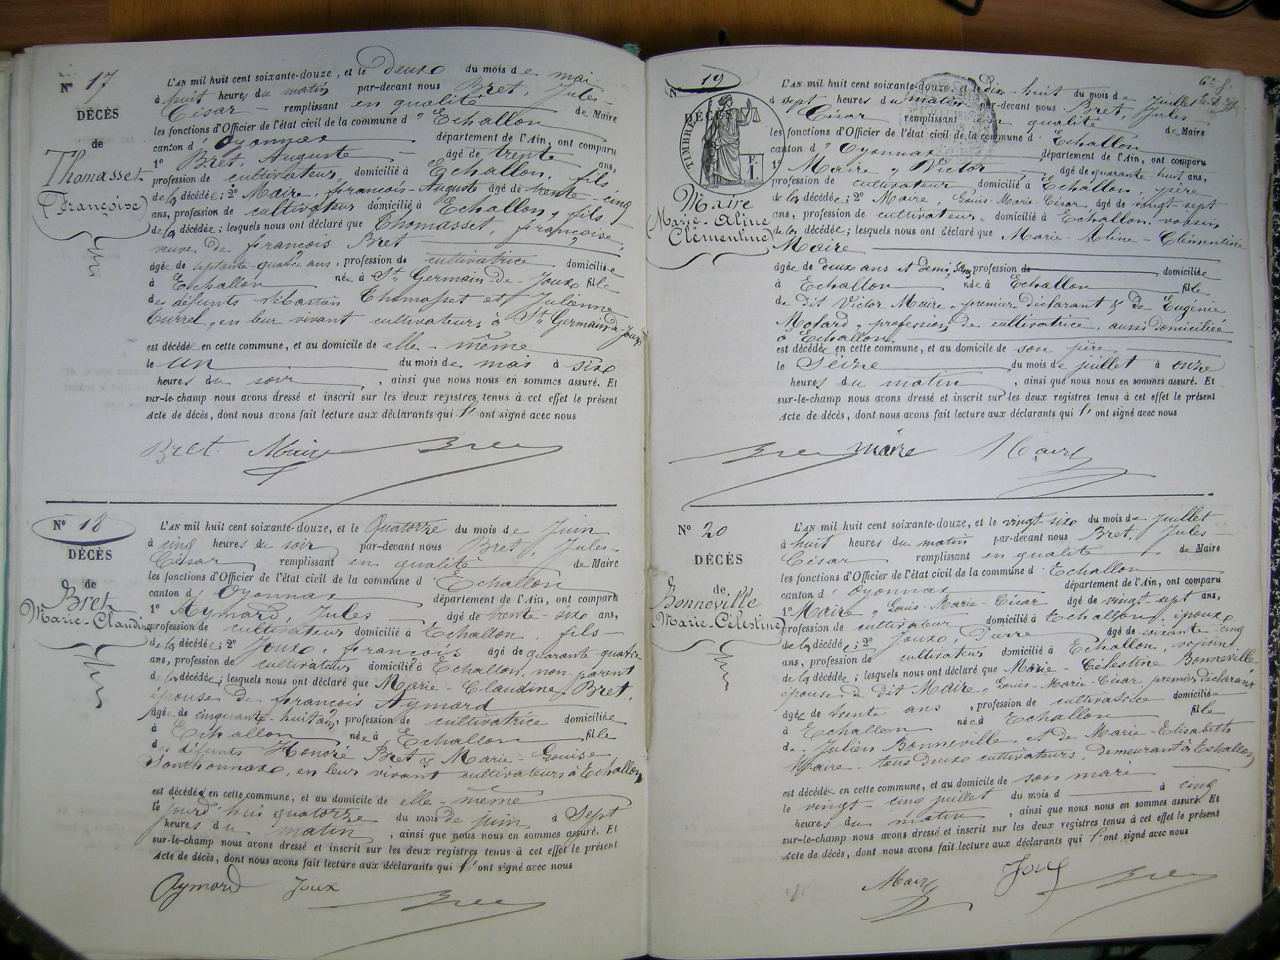 N° 17
DÉCÈS
de
Thomasset
(Françoise)
L'AN mil huit cent soixante-douze, et le deux du mois de mai
à huit heures du matin par-devant nous Bret, Jules-
César remplissant en qualité de Maire
les fonctions d'Officier de l'état civil de la commune d'Echallon
canton d'Oyonnax département de l'Ain, ont comparu
1° Bret, Auguste âgé de trente ans,
profession de cultivateur, domicilié à Echallon, fils
de la décédée; 2° Maire, françois-Auguste âgé de trente-cinq
ans, profession de cultivateur domicilié à Echallon, fils
de la décédée; lesquels nous ont déclaré que Thomasset, françoise,
veuve de françois Bret
âgée de septante-quatre ans, profession de cultivatrice domiciliée
à Echallon née à St Germain-de-Joux fille
des défunts Sébastien Thomasset et Julienne
Turrel, en leur vivant cultivateurs à St Germain-de-Joux
est décédée en cette commune, et au domicile de elle-même
le un du mois de mai à six
heures du soir, ainsi que nous nous en sommes assuré. Et
sur-le-champ nous avons dressé et inscrit sur les deux registres tenus à cet effet le présent
acte de décès, dont nous avons fait lecture aux déclarants qui l'ont signé avec nous
Bret Maire Bret
N° 18
DÉCÈS
de
Bret
Marie-Claudine
L'AN mil huit cent soixante-douze, et le Quatorze du mois de Juin
à cinq heures du soir par-devant nous Bret, Jules-
César remplissant en qualité de Maire
les fonctions d'Officier de l'état civil de la commune d'Echallon
canton d'Oyonnax département de l'Ain, ont comparu
1° Aymard, Jules âgé de trente-six ans,
profession de cultivateur domicilié à Echallon, fils
de la décédée; 2° Joux, françois âgé de quarante-quatre
ans, profession de cultivateur domicilié à Echallon, non parent
de la décédée; lesquels nous ont déclaré que Marie-Claudine Bret,
épouse de françois Aymard
âgée de cinquante-huit ans, profession de cultivatrice domiciliée
à Echallon née à Echallon fille
de défunts Honoré Bret & Marie-Louise
en leur vivant cultivateurs à Echallon
est décédée en cette commune, et au domicile de elle-même
le jourd'hui quatorze du mois de juin à Sept
heures du matin, ainsi que nous nous en sommes assuré. Et
sur-le-champ nous avons dressé et inscrit sur les deux registres tenus à cet effet le présent
acte de décès, dont nous avons fait lecture aux déclarants qui l'ont signé avec nous
Aymard Joux Bret
N° 19
DÉCÈS
TIMBRE
Maire
Marie-Aline
Clémentine
L'AN mil huit cent soixante-douze, et le dix-huit du mois de Juillet
à sept heures du matin par-devant nous Bret, Jules-
César remplissant en qualité de Maire
les fonctions d'Officier de l'état civil de la commune d'Echallon
canton d'Oyonnax département de l'Ain, ont comparu
1° Maire, Victor âgé de quarante-huit ans,
profession de cultivateur domicilié à Echallon, père
de la décédée; 2° Maire, Louis-Marie-César, âgé de vingt-sept
ans, profession de cultivateur, domicilié à Echallon, voisin
de la décédée; lesquels nous ont déclaré que Marie-Aline-Clémentine
Maire
âgée de deux ans et demi, profession de domiciliée
à Echallon née à Echallon fille
de dit Victor Maire, premier déclarant & de Eugénie
profession de cultivatrice, aussi domiciliée
à Echallon
est décédée en cette commune, et au domicile de son père
le Seize du mois de juillet à onze
heures du matin, ainsi que nous nous en sommes assuré. Et
sur-le-champ nous avons dressé et inscrit sur les deux registres tenus à cet effet le présent
acte de décès, dont nous avons fait lecture aux déclarants qui l'ont signé avec nous
Bret Maire Maire
N° 20
DÉCÈS
de
Bonneville
Marie-Célestine
L'AN mil huit cent soixante-douze, et le vingt-six du mois de Juillet
à huit heures du matin par-devant nous Bret, Jules-
César remplissant en qualité de Maire
les fonctions d'Officier de l'état civil de la commune d'Echallon
canton d'Oyonnax département de l'Ain, ont comparu
1° Maire, Louis-Marie-César âgé de vingt-sept ans,
profession de cultivateur domicilié à Echallon, époux
de la décédée; 2° Joux, Pierre âgé de soixante-cinq
ans, profession de cultivateur domicilié à Echallon, voisin
de la décédée; lesquels nous ont déclaré que Marie-Célestine Bonneville
épouse de dit Maire, Louis-Marie-César premier déclarant
âgée de trente ans, profession de cultivatrice domiciliée
à Echallon née à Echallon fille
de Julien Bonneville et de Marie-Elisabeth
Maire tous deux cultivateurs, demeurant à Echallon
est décédée en cette commune, et au domicile de son mari
le vingt-cinq juillet du mois d à cinq
heures du matin, ainsi que nous nous en sommes assuré. Et
sur-le-champ nous avons dressé et inscrit sur les deux registres tenus à cet effet le présent
acte de décès, dont nous avons fait lecture aux déclarants qui l'ont signé avec nous
Maire Joux Bret